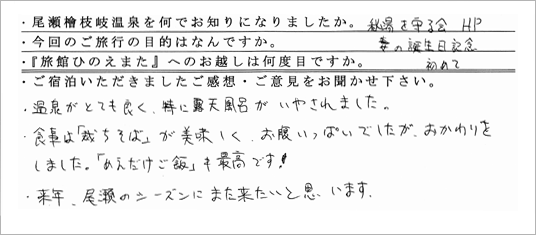 ・尾瀬檜枝岐温泉を何でお知りになりましたか。 秘湯を守る会 HP
・今回のご旅行の目的はなんですか。 妻の誕生日記念
・『旅館ひのえまた』へのお越しは何度目ですか。 初めて
・ご宿泊いただきましたご感想・ご意見をお聞かせ下さい。
・温泉がとても良く、特に露天風呂がいやされました。
・食事は「裁ちそば」が美味しく、お腹いっぱいでしたが、おかわりを
しました。「めえだけご飯」も最高です!
・来年、尾瀬のシーズンにまた来たいと思います。